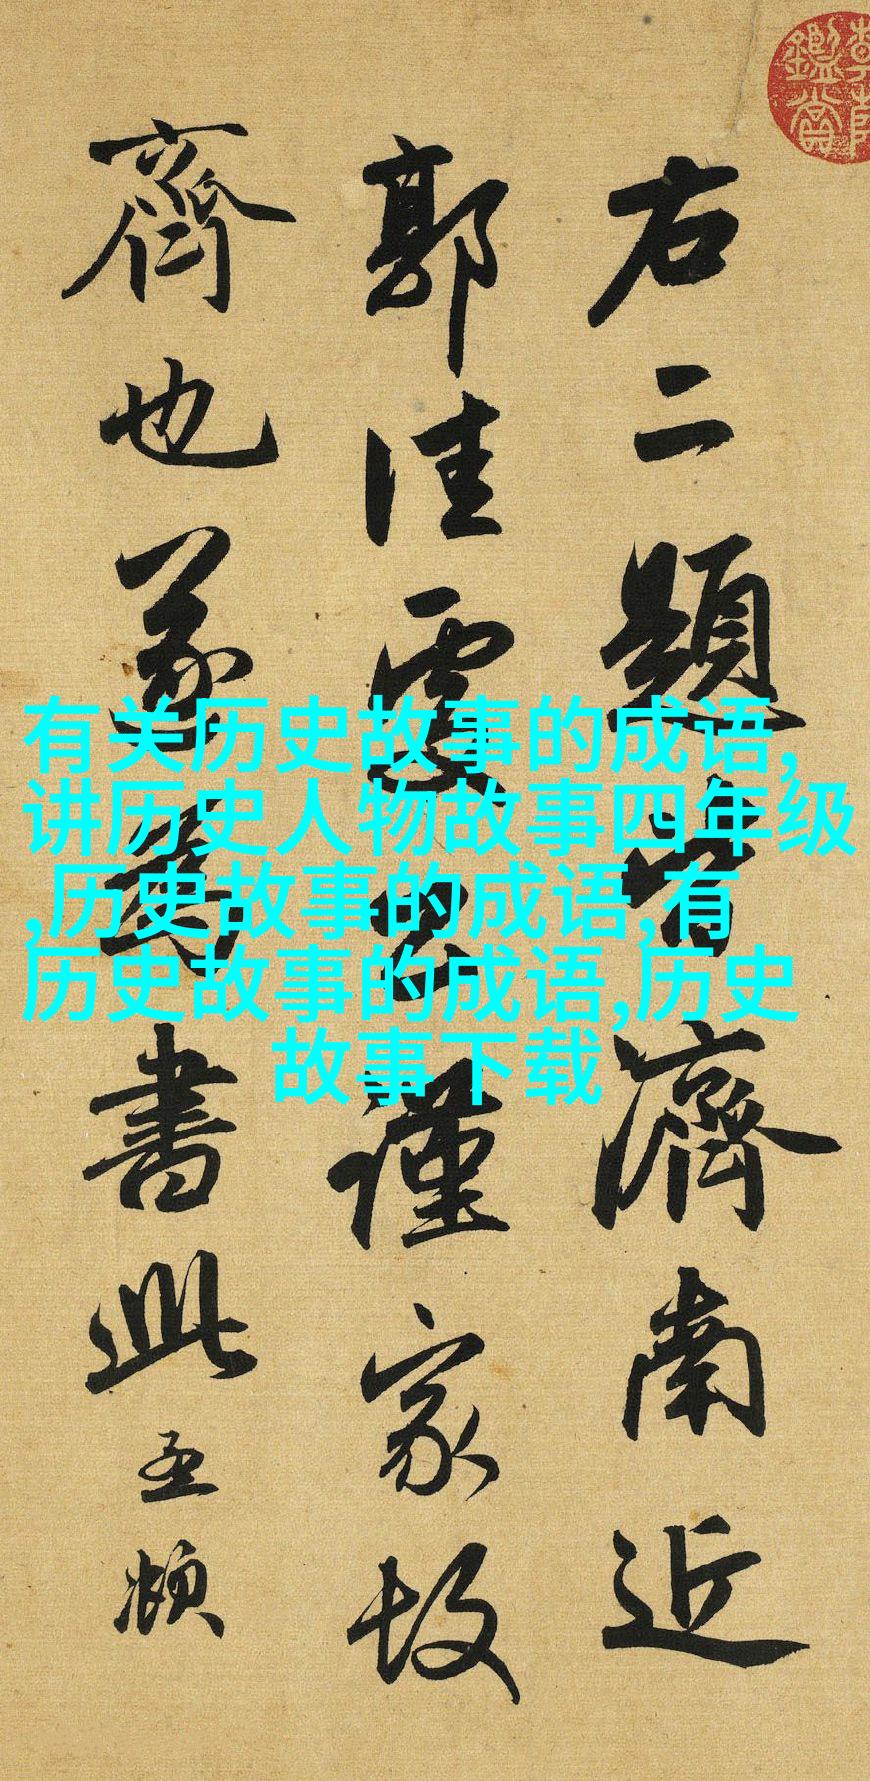 鑑賞
右二題皆濟南近
郭佳處公謹家故
齊也遂為書此孟頫
有关历史故事的成语,
讲历史人物故事四年级
,历史故事的成语,有
历史故事的成语,历史
故事下载